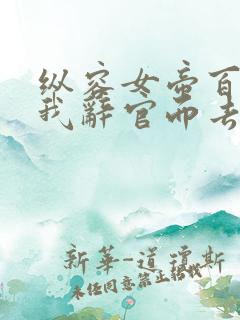 纵容女帝百
我辞官而去
新华-道琼斯
未经同意禁止转载